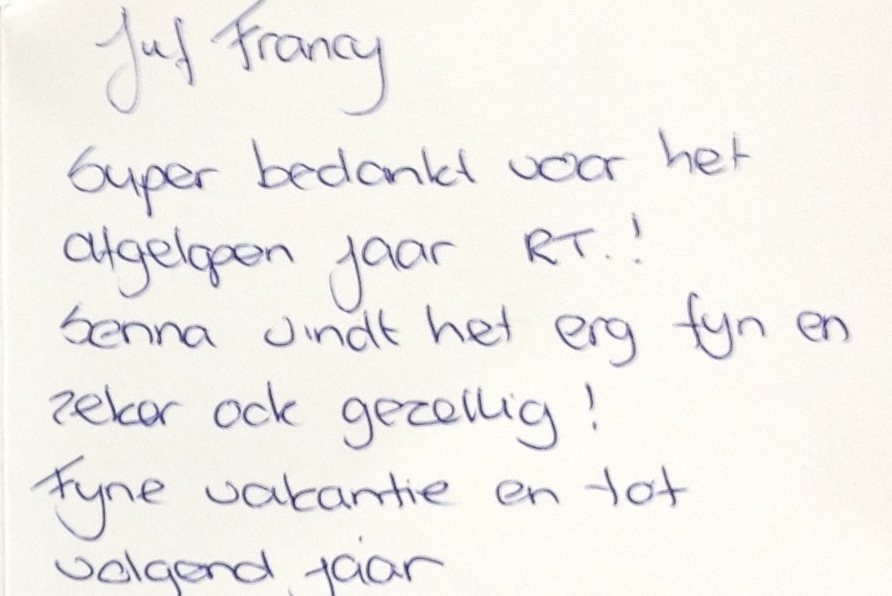 Juf Francy
Super bedankt voor het
afgelopen jaar RT.!
Senna vindt het erg fijn en
zeker ook gezellig!
Fijne vakantie en tot
volgend jaar